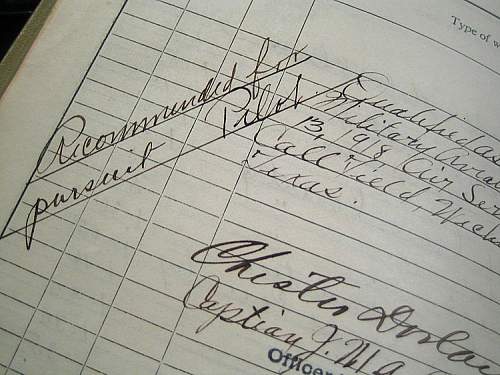 Type of w
Recommended for
pursuit Pilot.
Qualified as
Military Avia
13, 1918 Air Ser
Call Field, Wich
Texas.
Chester Dorla
Captian J. M. A
Officer